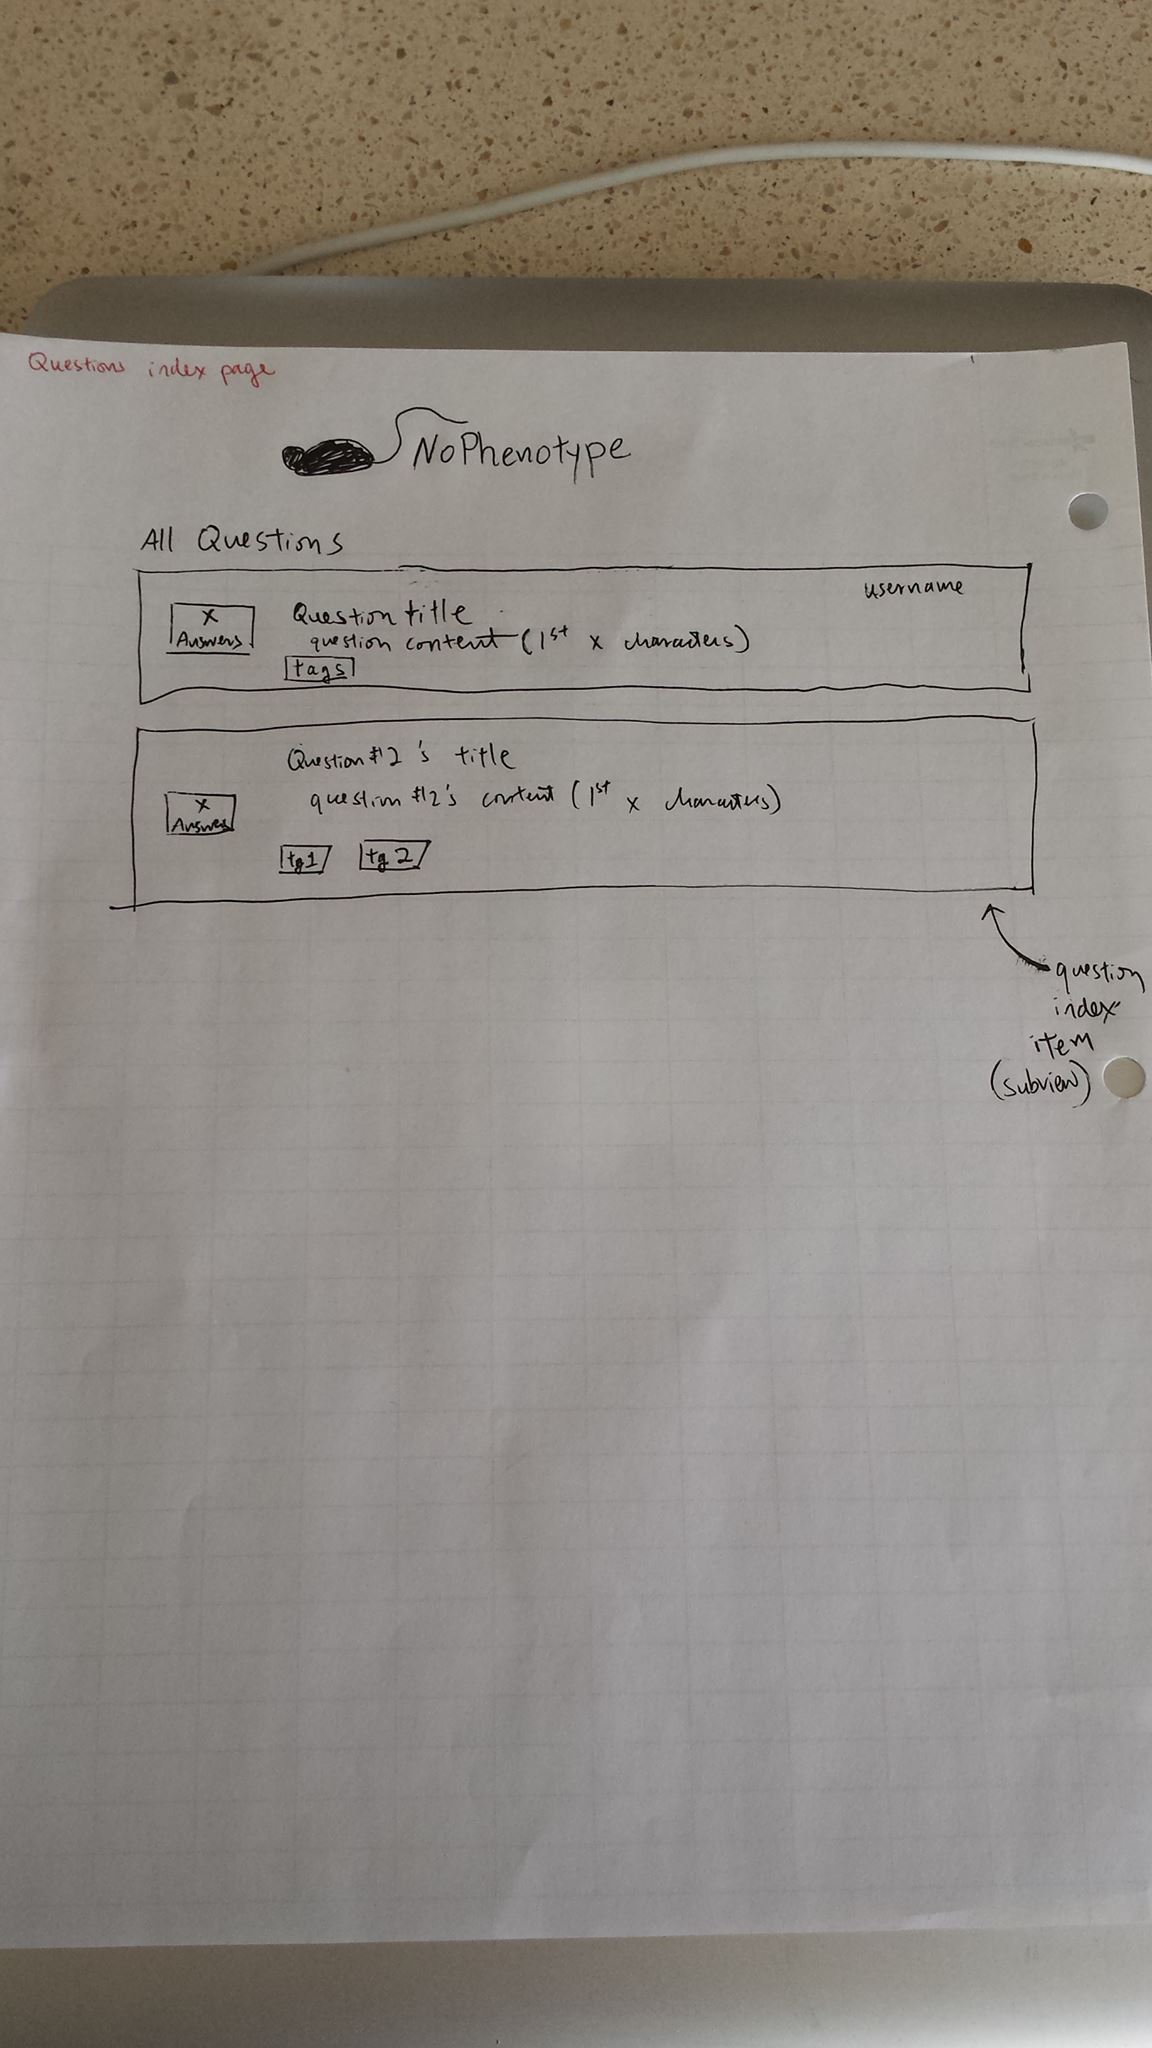 Questions index page
NoPhenotype
All Questions
username
X
Answers
Question title
question content (1st x characters)
tags
Question #2's title
question #2's content (1st x characters)
X
Answer
tg1 tg 2
question
index
item
(subview)